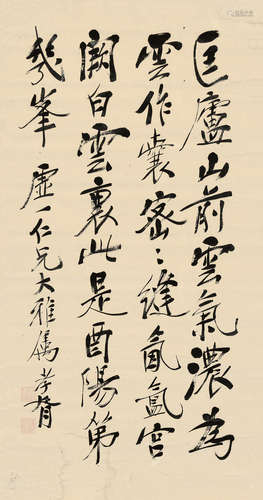 匡廬山前雲氣濃為
雲作囊密〻縫氤氳宮
闕白雲裏此是酉陽第
幾峯 虛一仁兄大雅屬 孝胥